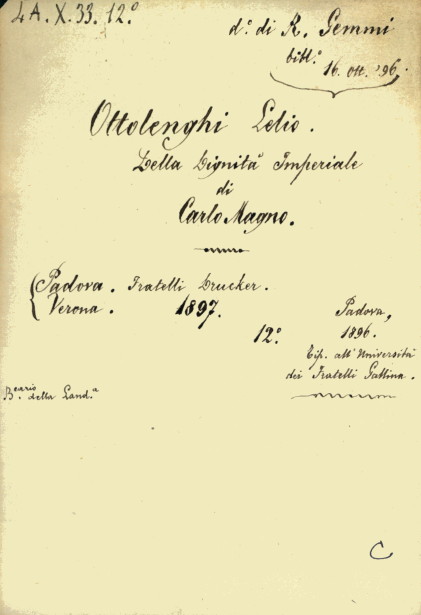 4A.X.33.12.º
d.º di R. Gemmi
bibl.º
16. ott. '96.
Ottolenghi Lelio.
Della Dignità Imperiale
di
Carlo Magno.
Padova. Fratelli Drucker.
Verona. 1897.
12.º
Padova,
1896.
Tip. all'Università
dei Fratelli Gallina.
B.ecario della Land.a
C